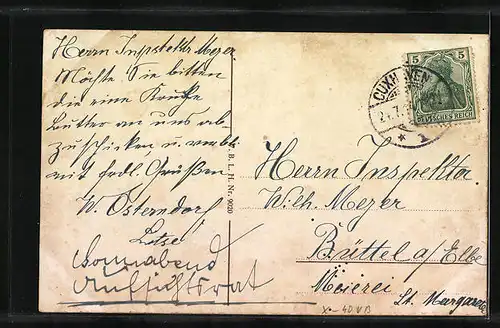 Herrn Inspektr Meyer
Möchte Sie bitten
die eine Kruke
Butter an uns ab-
zuschicken, u. verbl.
mit frdl. Grüßen
W. Osterndorf
Lotse
Sonnabend
Aufsichtsrat
B. L. H. Nr. 9020
CUXHAVEN
5 5
DEUTSCHES REICH
Herrn Inspektor
Wilh. Meyer
Büttel a/Elbe
Meierei
St. Margareten